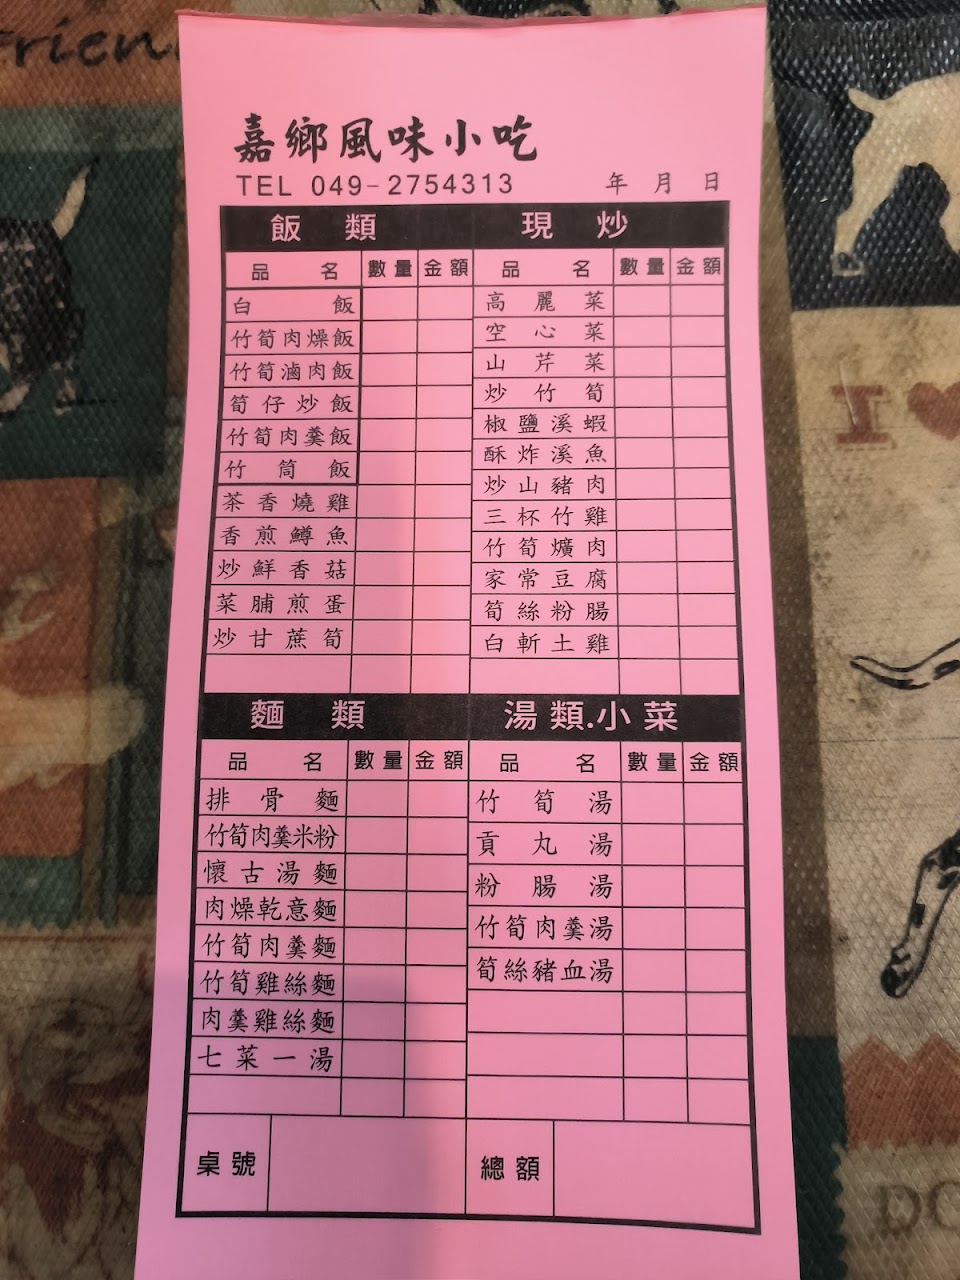 frien
嘉鄉風味小吃
TEL 049-2754313 年 月 日
飯類
品名 數量 金額
白飯
竹筍肉燥飯
竹筍滷肉飯
筍仔炒飯
竹筍肉羹飯
竹筒飯
茶香燒雞
香煎鱒魚
炒鮮香菇
菜脯煎蛋
炒甘蔗筍
現炒
品名 數量 金額
高麗菜
空心菜
山芹菜
炒竹筍
椒鹽溪蝦
酥炸溪魚
炒山豬肉
三杯竹雞
竹筍爌肉
家常豆腐
筍絲粉腸
白斬土雞
麵類
品名 數量 金額
排骨麵
竹筍肉羹米粉
懷古湯麵
肉燥乾意麵
竹筍肉羹麵
竹筍雞絲麵
肉羹雞絲麵
七菜一湯
湯類.小菜
品名 數量 金額
竹筍湯
貢丸湯
粉腸湯
竹筍肉羹湯
筍絲豬血湯
桌號 總額
I
DO